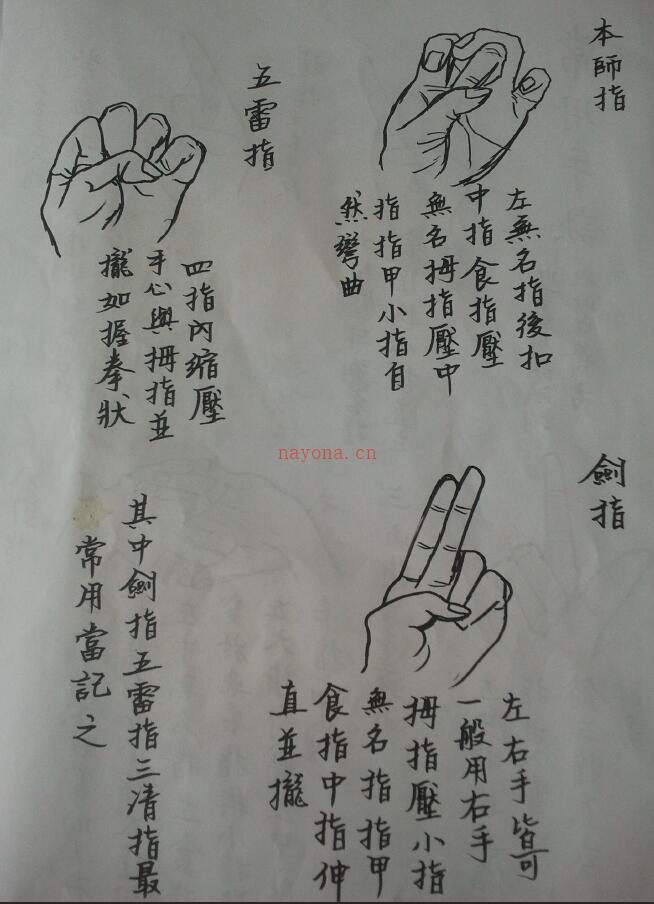 本師指
左無名指後扣
中指食指壓
無名拇指壓中
指指甲小指自
然彎曲
五雷指
四指內縮壓
手心與拇指並
攏如握拳狀
nayona.cn
劍指
左右手皆可
一般用右手
拇指壓小指
無名指指甲
食指中指伸
直並攏
其中劍指五雷指三清指最
常用當記之